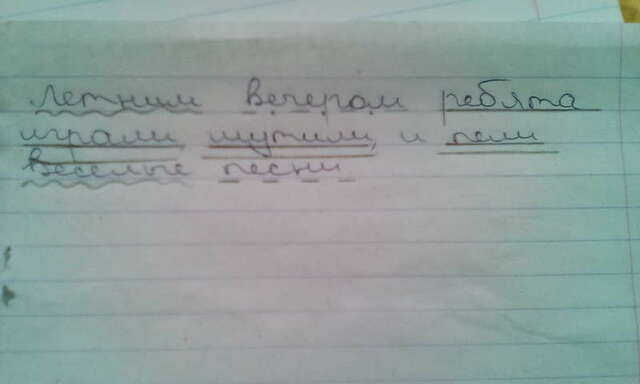 Летним вечером ребята
играли, шутили, и пели
веселые песни